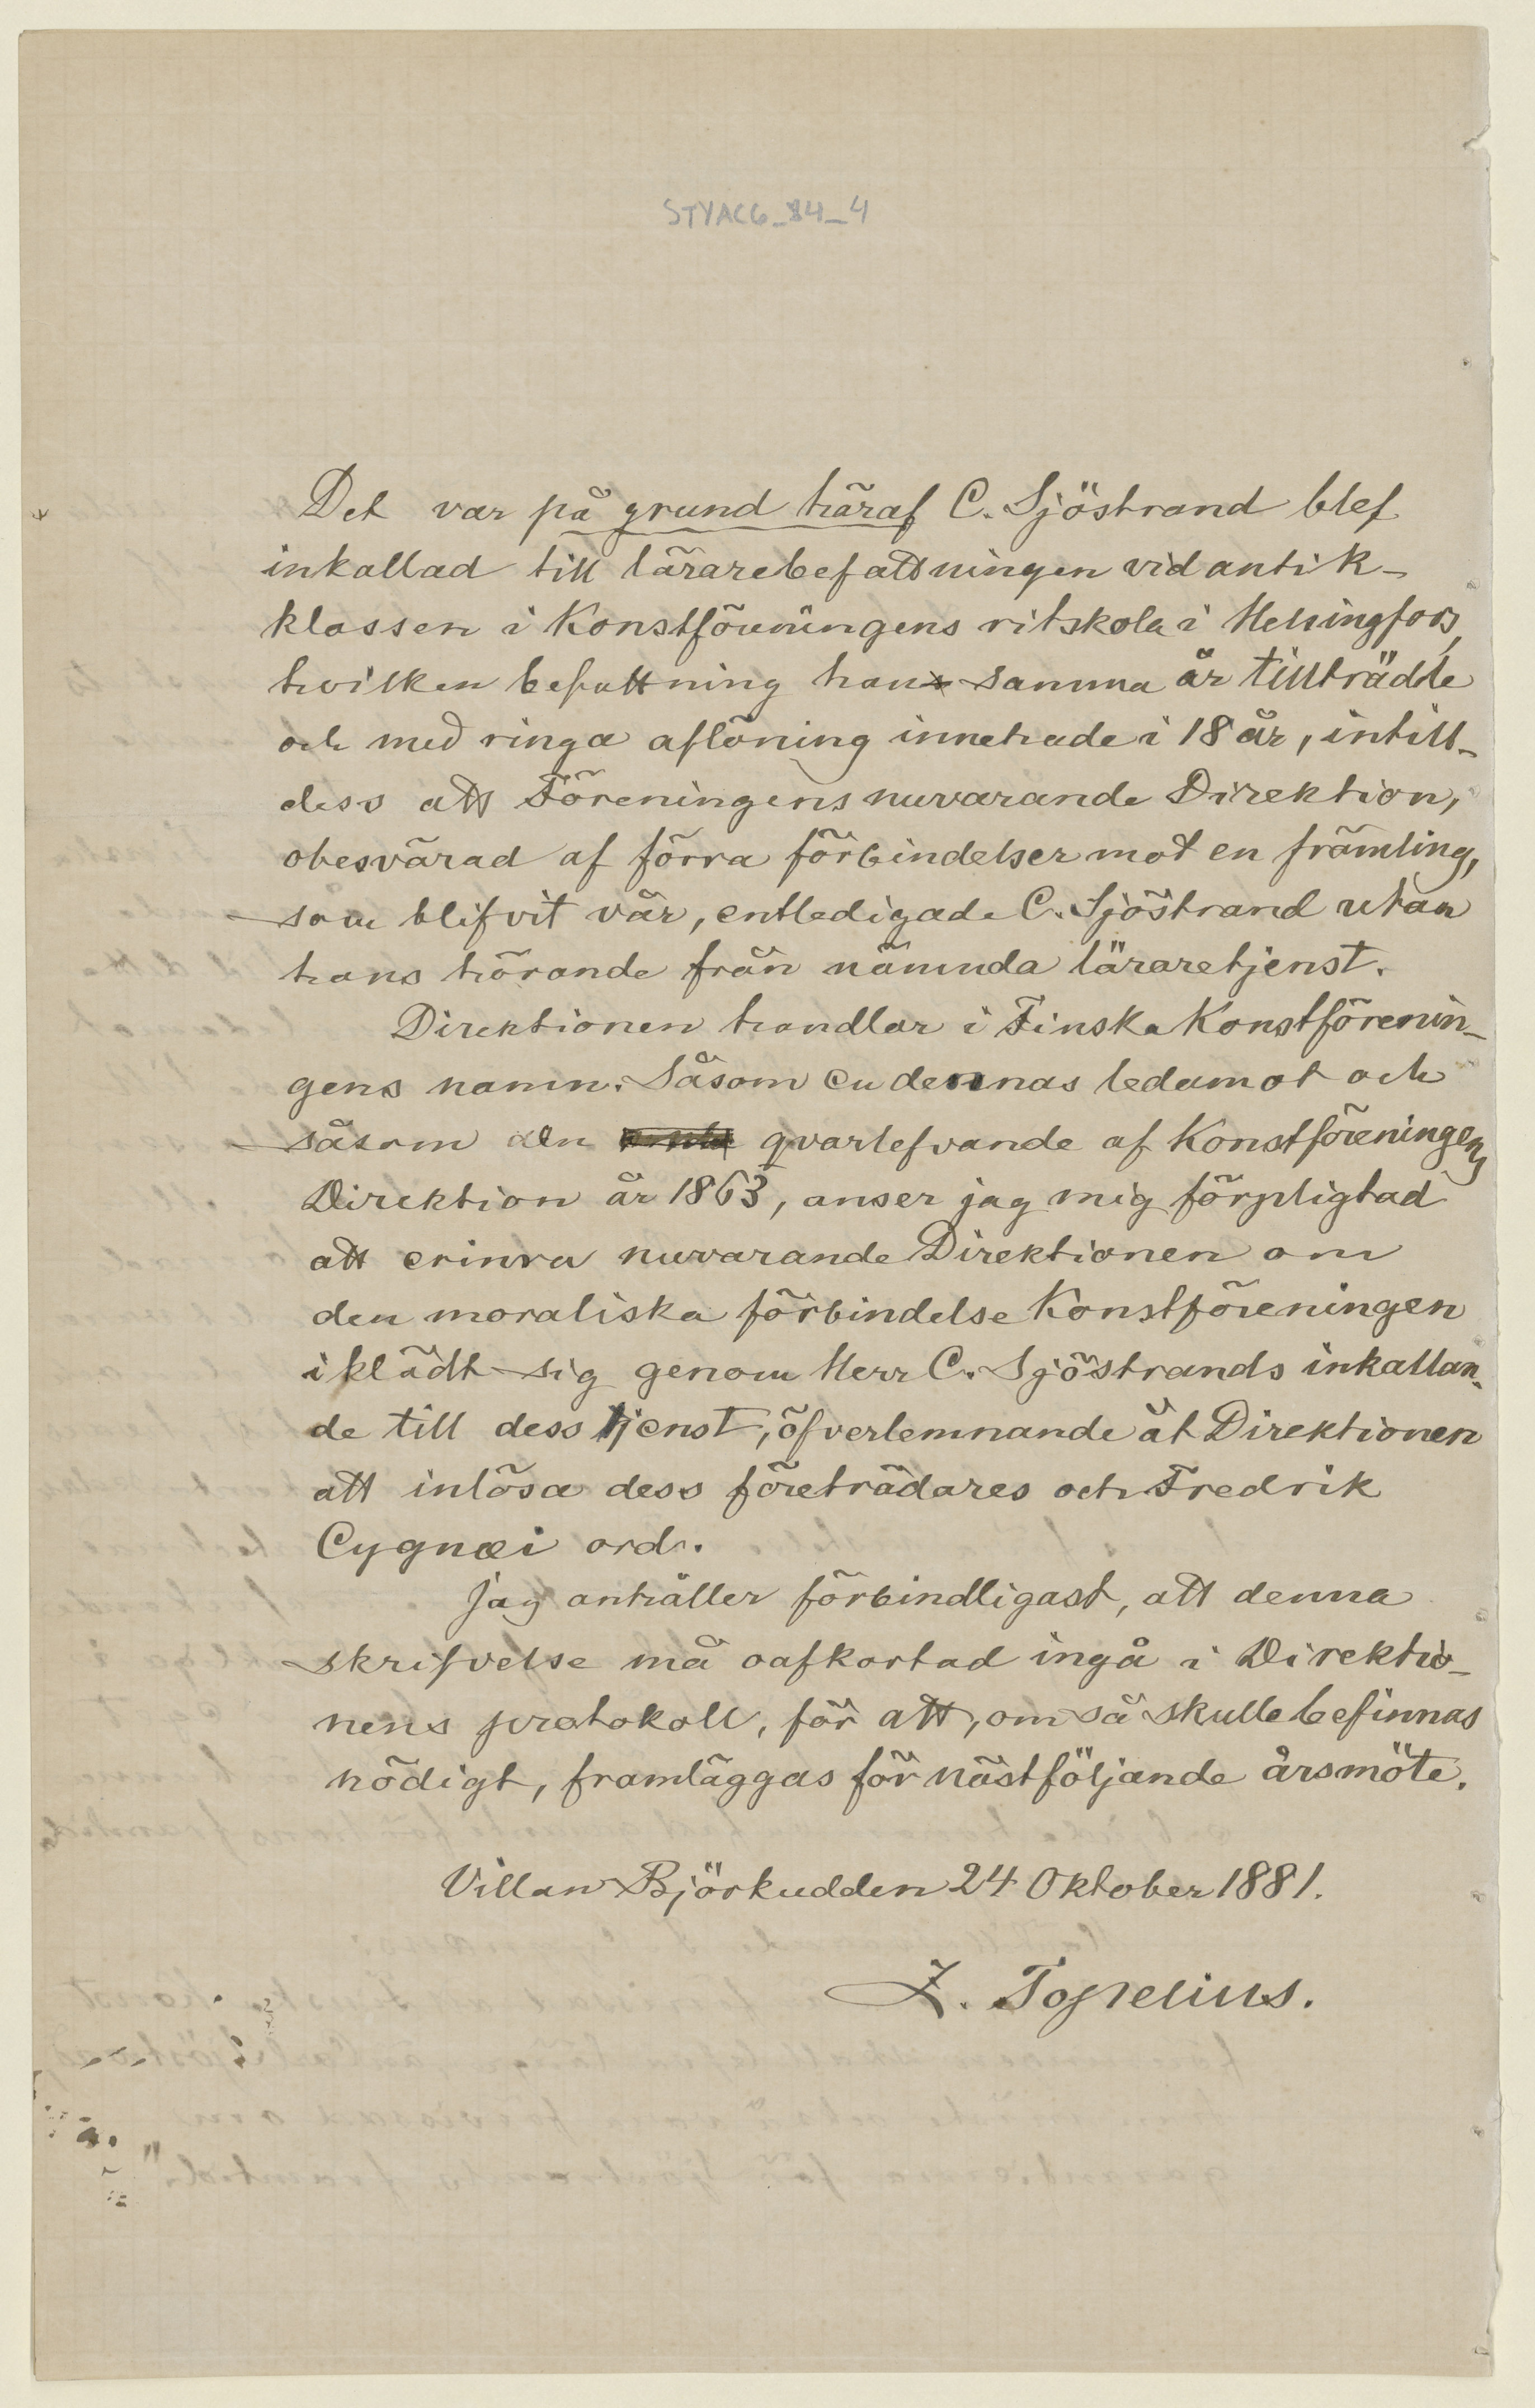 STYAC6_84_4
Det var på grund häraf C. Sjöstrand blef
inkallad till lärarebefattningen vid antik-
klassen i Konstföreningens ritskola i Helsingfors,
hvilken befattning han samma år tillträdde
och med ringa aflöning innehade i 18 år, intill-
dess att Föreningens nuvarande Direktion,
obesvärad af förra förbindelser mot en främling,
som blifvit vår, entledigade C. Sjöstrand utan
hans hörande från nämnda läraretjenst.
Direktionen handlar i Finska Konstförenin-
gens namn. Såsom en dennas ledamot och
såsom den qvarlefvande af Konstföreningens
Direktion år 1863, anser jag mig förpligtad
att erinra nuvarande Direktionen om
den moraliska förbindelse Konstföreningen
iklädt sig genom Herr C. Sjöstrands inkallan-
de till dess tjenst, öfverlemnande åt Direktionen
att inlösa dess företrädares och Fredrik
Cygnæi ord.
Jag anhåller förbindligast, att denna
skrifvelse må oafkortad ingå i Direktio-
nens protokoll, för att, om så skulle befinnas
nödigt, framläggas för nästföljande årsmöte.
Villan Björkudden 24 Oktober 1881.
Z. Topelius.